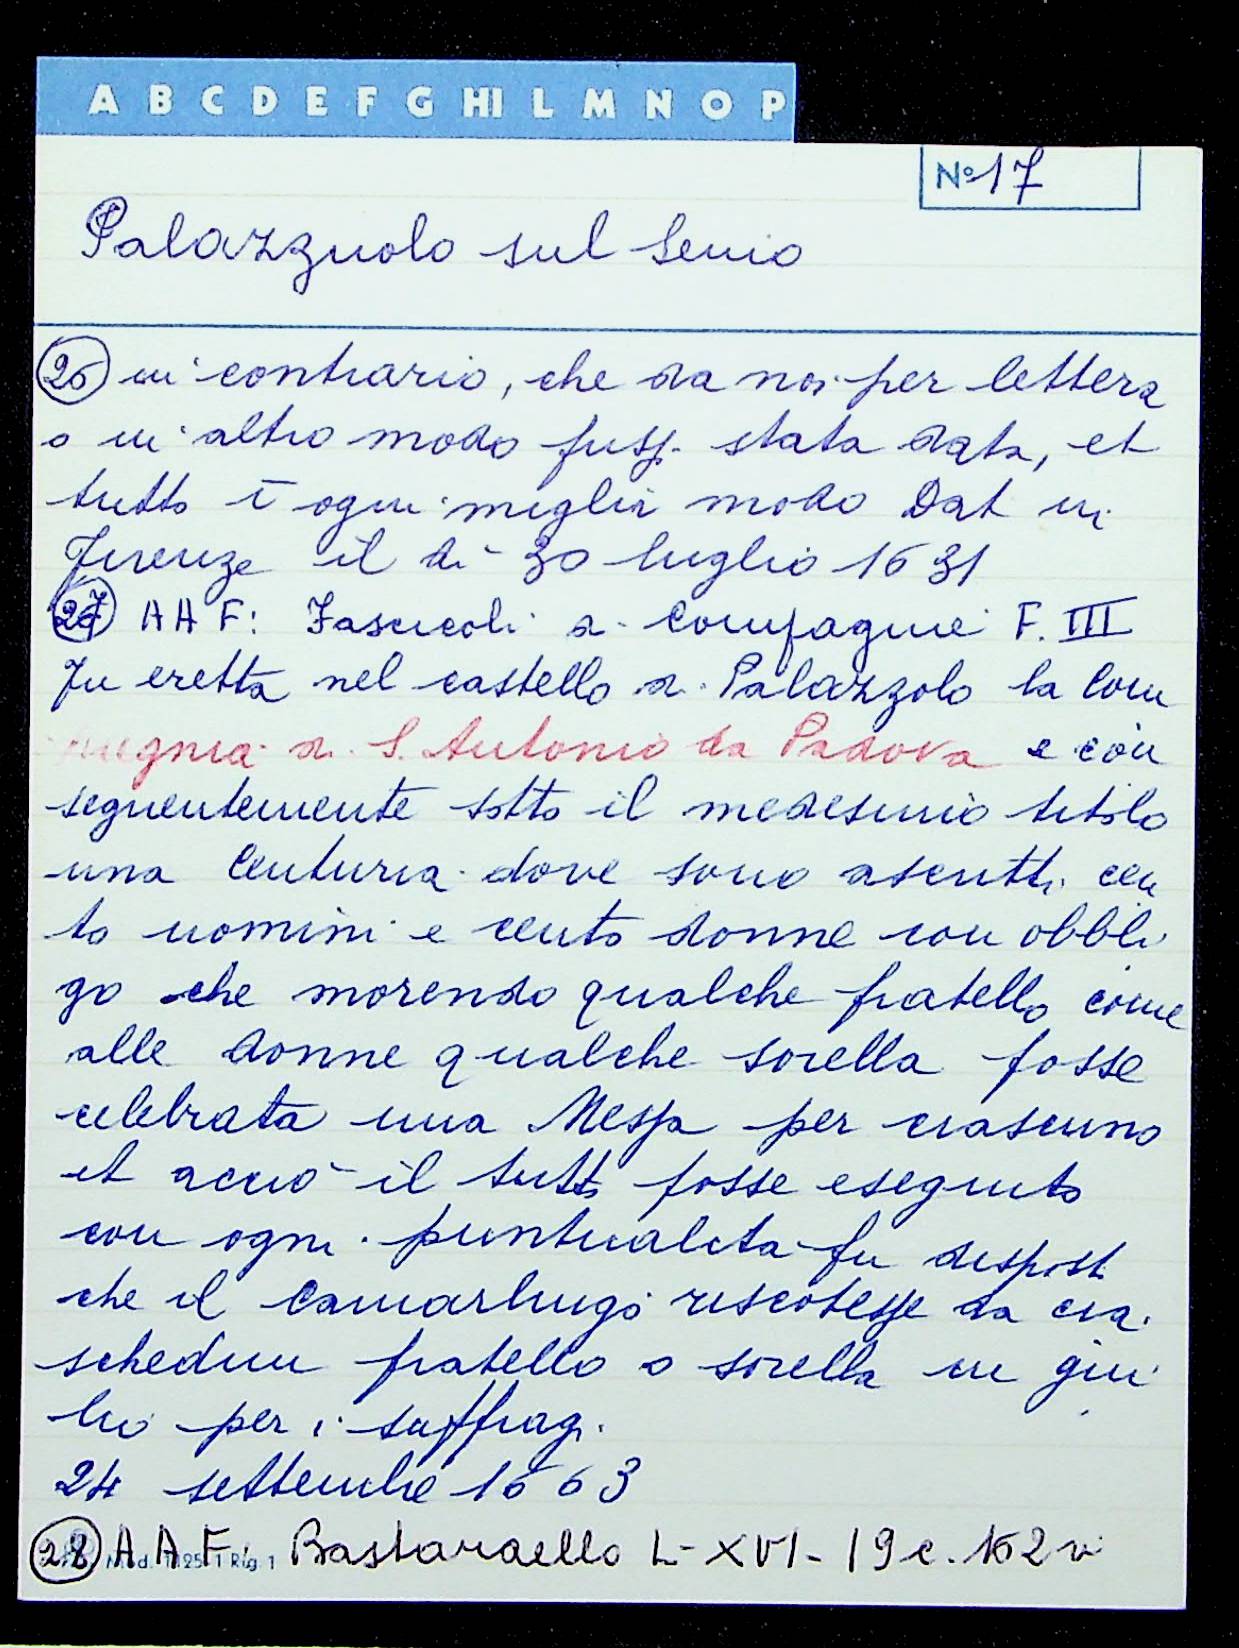 A B C D E F G HI L M N O P
No 17
Palazzuolo sul Senio
26 in contrario, che da noi per lettera
o in altro modo fuss. stata data, et
tutto ī ogni miglir modo Dat in
Firenze il dì 30 luglio 1631
27 AAF: Fascicoli di Compagnie F. III
Fu eretta nel castello di Palazzolo la Com
pagnia di S. Antonio da Padova e con
seguentemente sotto il medesimo titolo
una Centuria dove sono ascritti cen
to uomini e cento donne con obbli
go che morendo qualche fratello come
alle donne qualche sorella fosse
celebrata una Messa per ciascuno
et acciò il tutto fosse eseguito
con ogni puntualità fu dispost
che il Camarlingo riscotesse da cia
schedun fratello o sorella un giu
lio per i suffragi.
24 settembre 1663
28 AAF: Bastardello L-XVI-19 c. 162v
Mod. 1125/1 Rig. 1